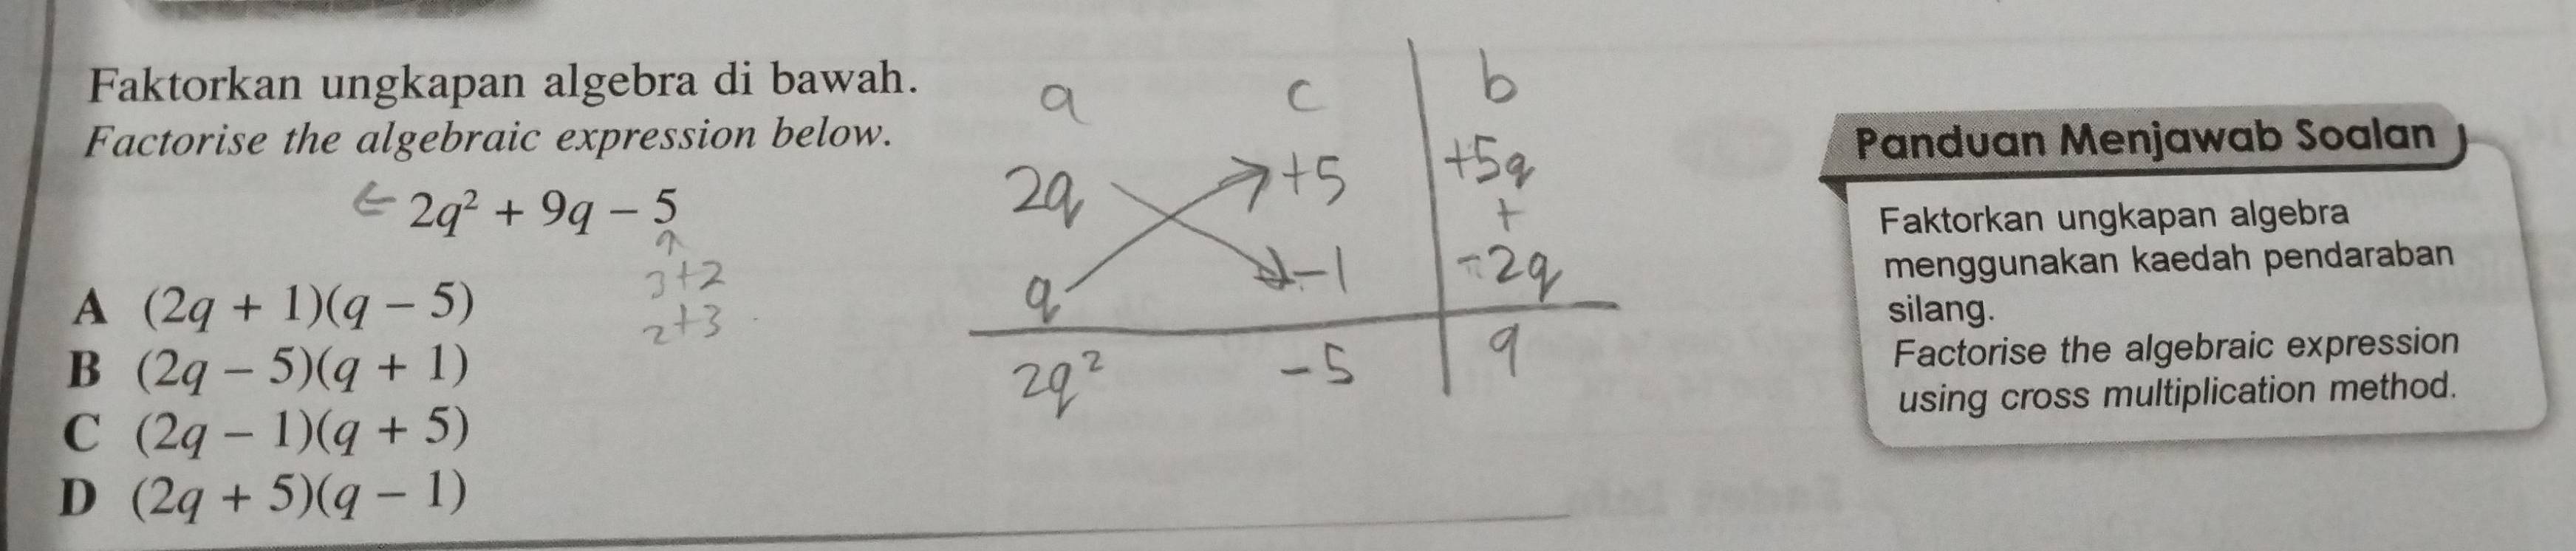 Faktorkan ungkapan algebra di bawah.
Factorise the algebraic expression below.
← 2q² + 9q – 5
↑
3+2
2+3
A (2q + 1)(q – 5)
B (2q – 5)(q + 1)
C (2q – 1)(q + 5)
D (2q + 5)(q – 1)
a c b
2q +5 +5q
+
q -1 -2q
2q² -5 9
Panduan Menjawab Soalan
Faktorkan ungkapan algebra
menggunakan kaedah pendaraban
silang.
Factorise the algebraic expression
using cross multiplication method.